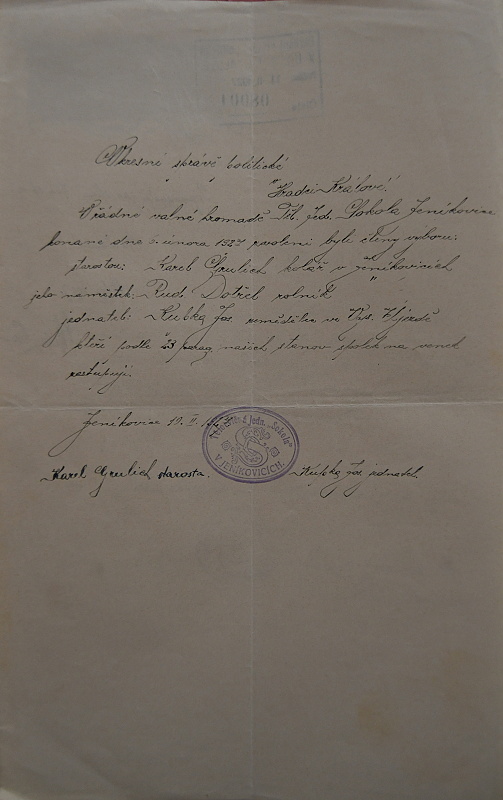 Okresní správě politické
v Hradci Králové!
V řádné valné hromadě Těl. Jed. Sokola Jeníkovice
konané dne 2. února 1927 zvoleni byli členy výboru:
starostou: Karel Grulich kolář v Jeníkovicích
jeho náměstek: Rud. Dotřel rolník "
jednatel: Kubka Jos. ve Vys. Újezdě
kteří podle našich stanov spolek na venek
zastupují.
Jeníkovice 19. II.
Tělocvičná Jedn. „Sokol"
V JENÍKOVICÍCH.
Karel Grulich starosta. Kubka Jos. jednatel.